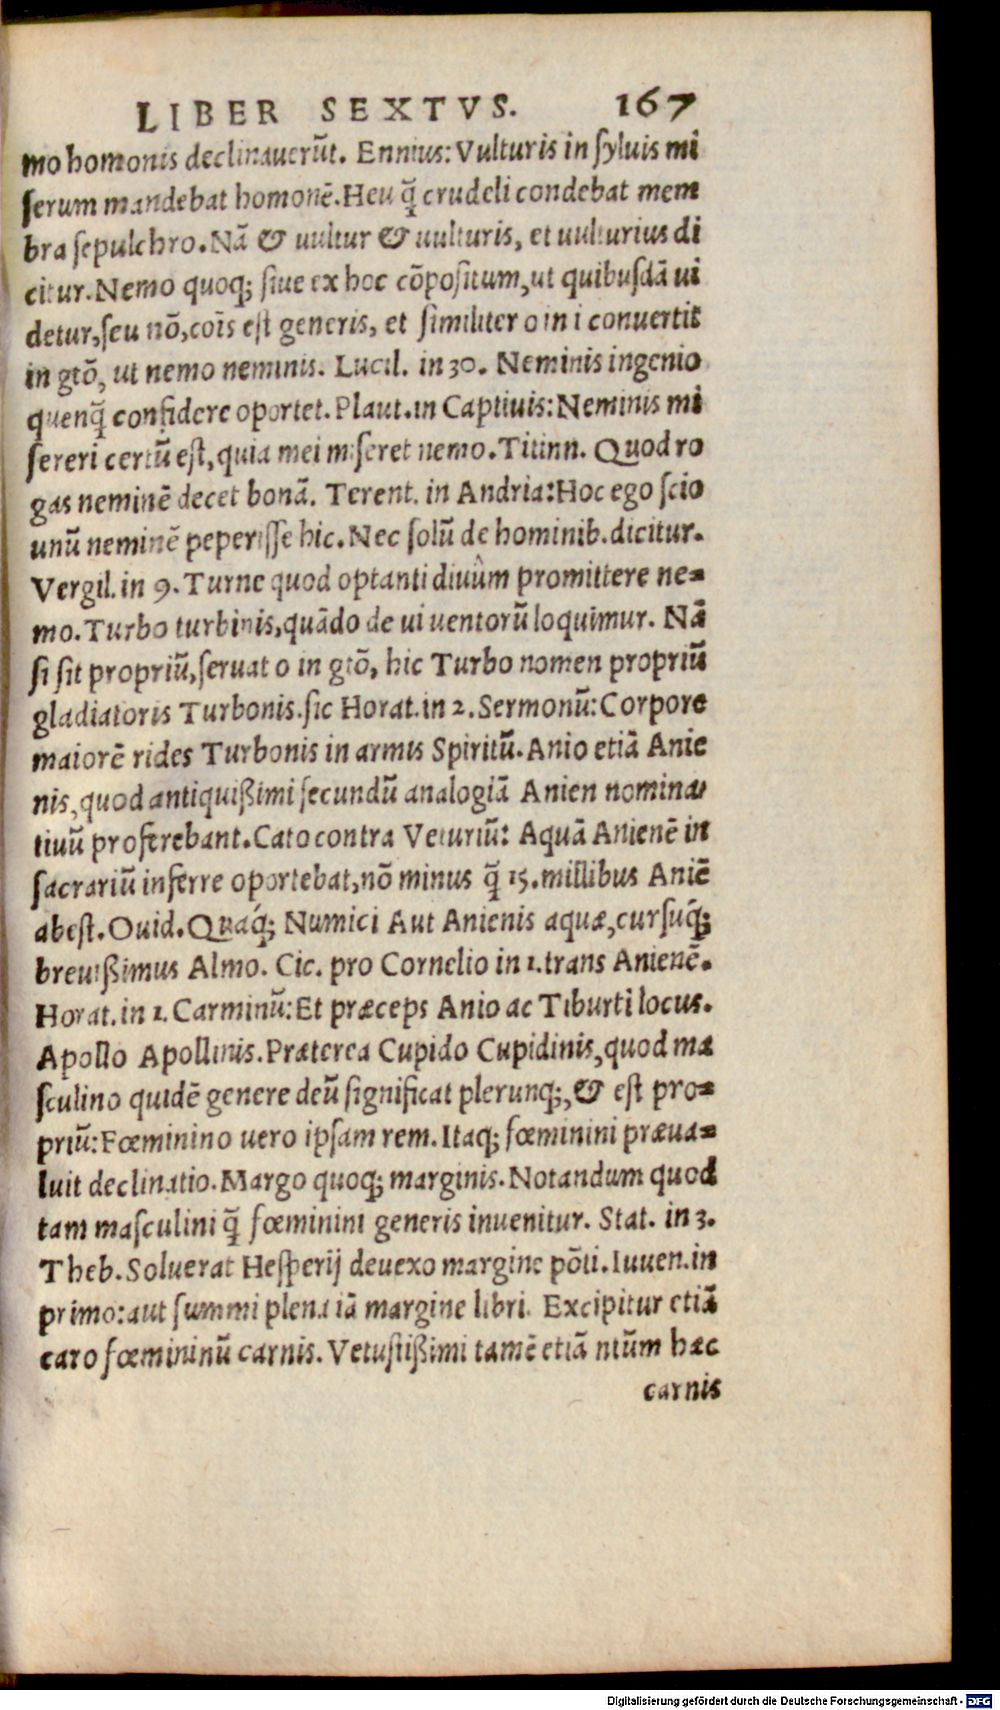 LIBER SEXTVS. 167
mo homonis declinauerūt. Ennius: Vulturis in ſyluis mi
ſerum mandebat homonē. Heu q̄ crudeli condebat mem
bra ſepulchro. Nā & uultur & uulturis, et uulturius di
citur. Nemo quoq; ſiue ex hoc cōpoſitum, ut quibuſdā ui
detur, ſeu nō, cois eſt generis, et ſimiliter o in i conuertit
in gtō, ut nemo neminis. Lucil. in 30. Neminis ingenio
quenq̄ confidere oportet. Plaut. in Captiuis: Neminis mi
ſereri certū eſt, quia mei miſeret nemo. Titinn. Quod ro
gas neminē decet bonā. Terent. in Andria: Hoc ego ſcio
unū neminē peperiſſe hic. Nec ſolū de hominib. dicitur.
Vergil. in 9. Turne quod optanti diuûm promittere ne=
mo. Turbo turbinis, quādo de ui uentorū loquimur. Nā
ſi ſit propriū, ſeruat o in gtō, hic Turbo nomen propriū
gladiatoris Turbonis. ſic Horat. in 2. Sermonū: Corpore
maiorē rides Turbonis in armis Spiritū. Anio etiā Anie
nis, quod antiquißimi ſecundū analogiā Anien nomina-
tiuū proferebant. Cato contra Veturiū: Aquā Anienē in
ſacrariū inferre oportebat, nō minus q̄ 15. millibus Aniē
abeſt. Ouid. Quaq́; Numici Aut Anienis aquæ, curſuq́;
breuißimus Almo. Cic. pro Cornelio in 1. trans Anienē.
Horat. in 1. Carminū: Et præceps Anio ac Tiburti locus.
Apollo Apollinis. Præterea Cupido Cupidinis, quod ma
ſculino quidē genere deū ſignificat plerunq;, & eſt pro=
priū: Fœminino uero ipſam rem. Itaq; fœminini præua=
luit declinatio. Margo quoq; marginis. Notandum quod
tam maſculini q̄ fœminini generis inuenitur. Stat. in 3.
Theb. Soluerat Heſperij deuexo margine pōti. Iuuen. in
primo: aut ſummi plena iā margine libri. Excipitur etiā
caro fœmininū carnis. Vetuſtißimi tamē etiā ntūm hæc
carnis
Digitalisierung gefördert durch die Deutsche Forschungsgemeinschaft - DFG